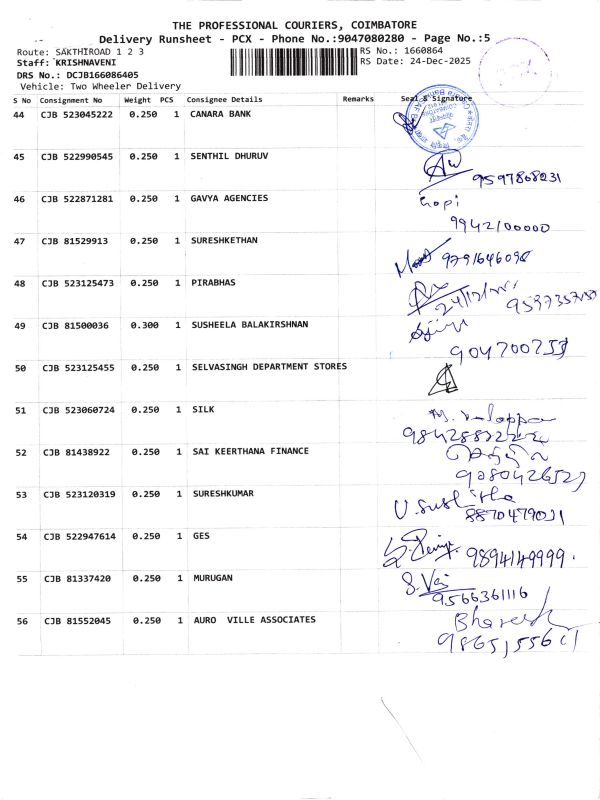 THE PROFESSIONAL COURIERS, COIMBATORE
Delivery Runsheet - PCX - Phone No.:9047080280 - Page No.:5
Route: SAKTHIROAD 1 2 3
RS No.: 1660864
Staff: KRISHNAVENI
RS Date: 24-Dec-2025
DRS No.: DCJB166086405
Vehicle: Two Wheeler Delivery
S No Consignment No Weight PCS Consignee Details Remarks Seal & Signature
44 CJB 523045222 0.250 1 CANARA BANK
45 CJB 522990545 0.250 1 SENTHIL DHURUV
9597868231
46 CJB 522871281 0.250 1 GAVYA AGENCIES
Gopi
9942100000
47 CJB 81529913 0.250 1 SURESHKETHAN
9791646098
48 CJB 523125473 0.250 1 PIRABHAS
49 CJB 81500036 0.300 1 SUSHEELA BALAKIRSHNAN
50 CJB 523125455 0.250 1 SELVASINGH DEPARTMENT STORES
51 CJB 523060724 0.250 1 SILK
52 CJB 81438922 0.250 1 SAI KEERTHANA FINANCE
9080426527
53 CJB 523120319 0.250 1 SURESHKUMAR
8870479021
54 CJB 522947614 0.250 1 GES
9894149999.
55 CJB 81337420 0.250 1 MURUGAN
9566361116
56 CJB 81552045 0.250 1 AURO VILLE ASSOCIATES
Bharesh